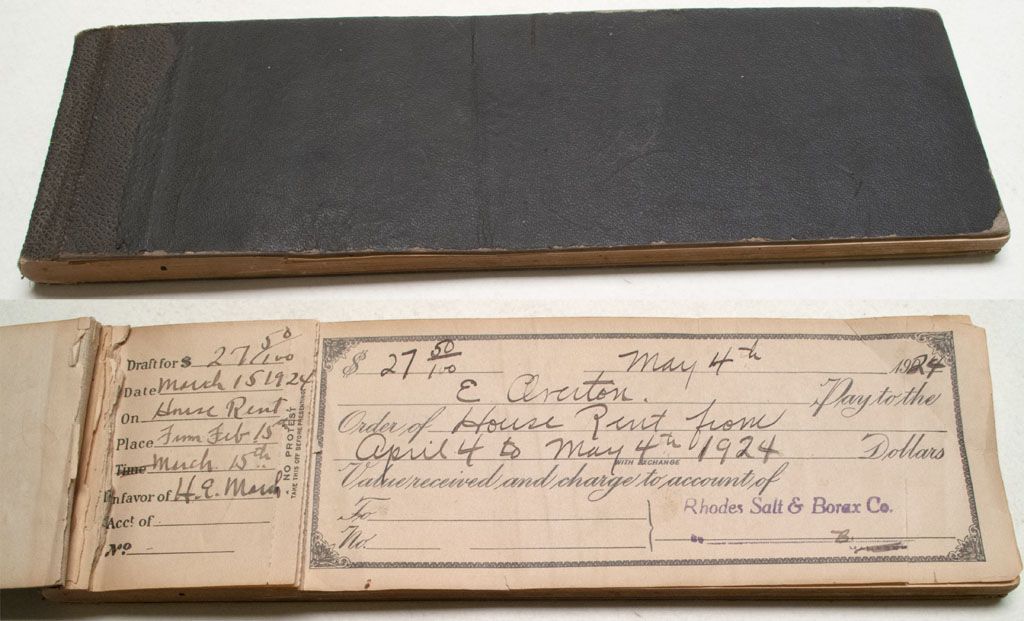 Draft for $ 27 50/100
Date March 15 1924
On House Rent
Place From Feb 15th
Time March 15th
In favor of H.E.
Acc't of
No
NO PROTEST
TAKE THIS OFF BEFORE PRESENTING
$ 27 50/100 May 4th 1924
E Overton. Pay to the
Order of House Rent from
April 4 to May 4th 1924 Dollars
WITH EXCHANGE
Value received and charge to account of
To
No.
Rhodes Salt & Borax Co.